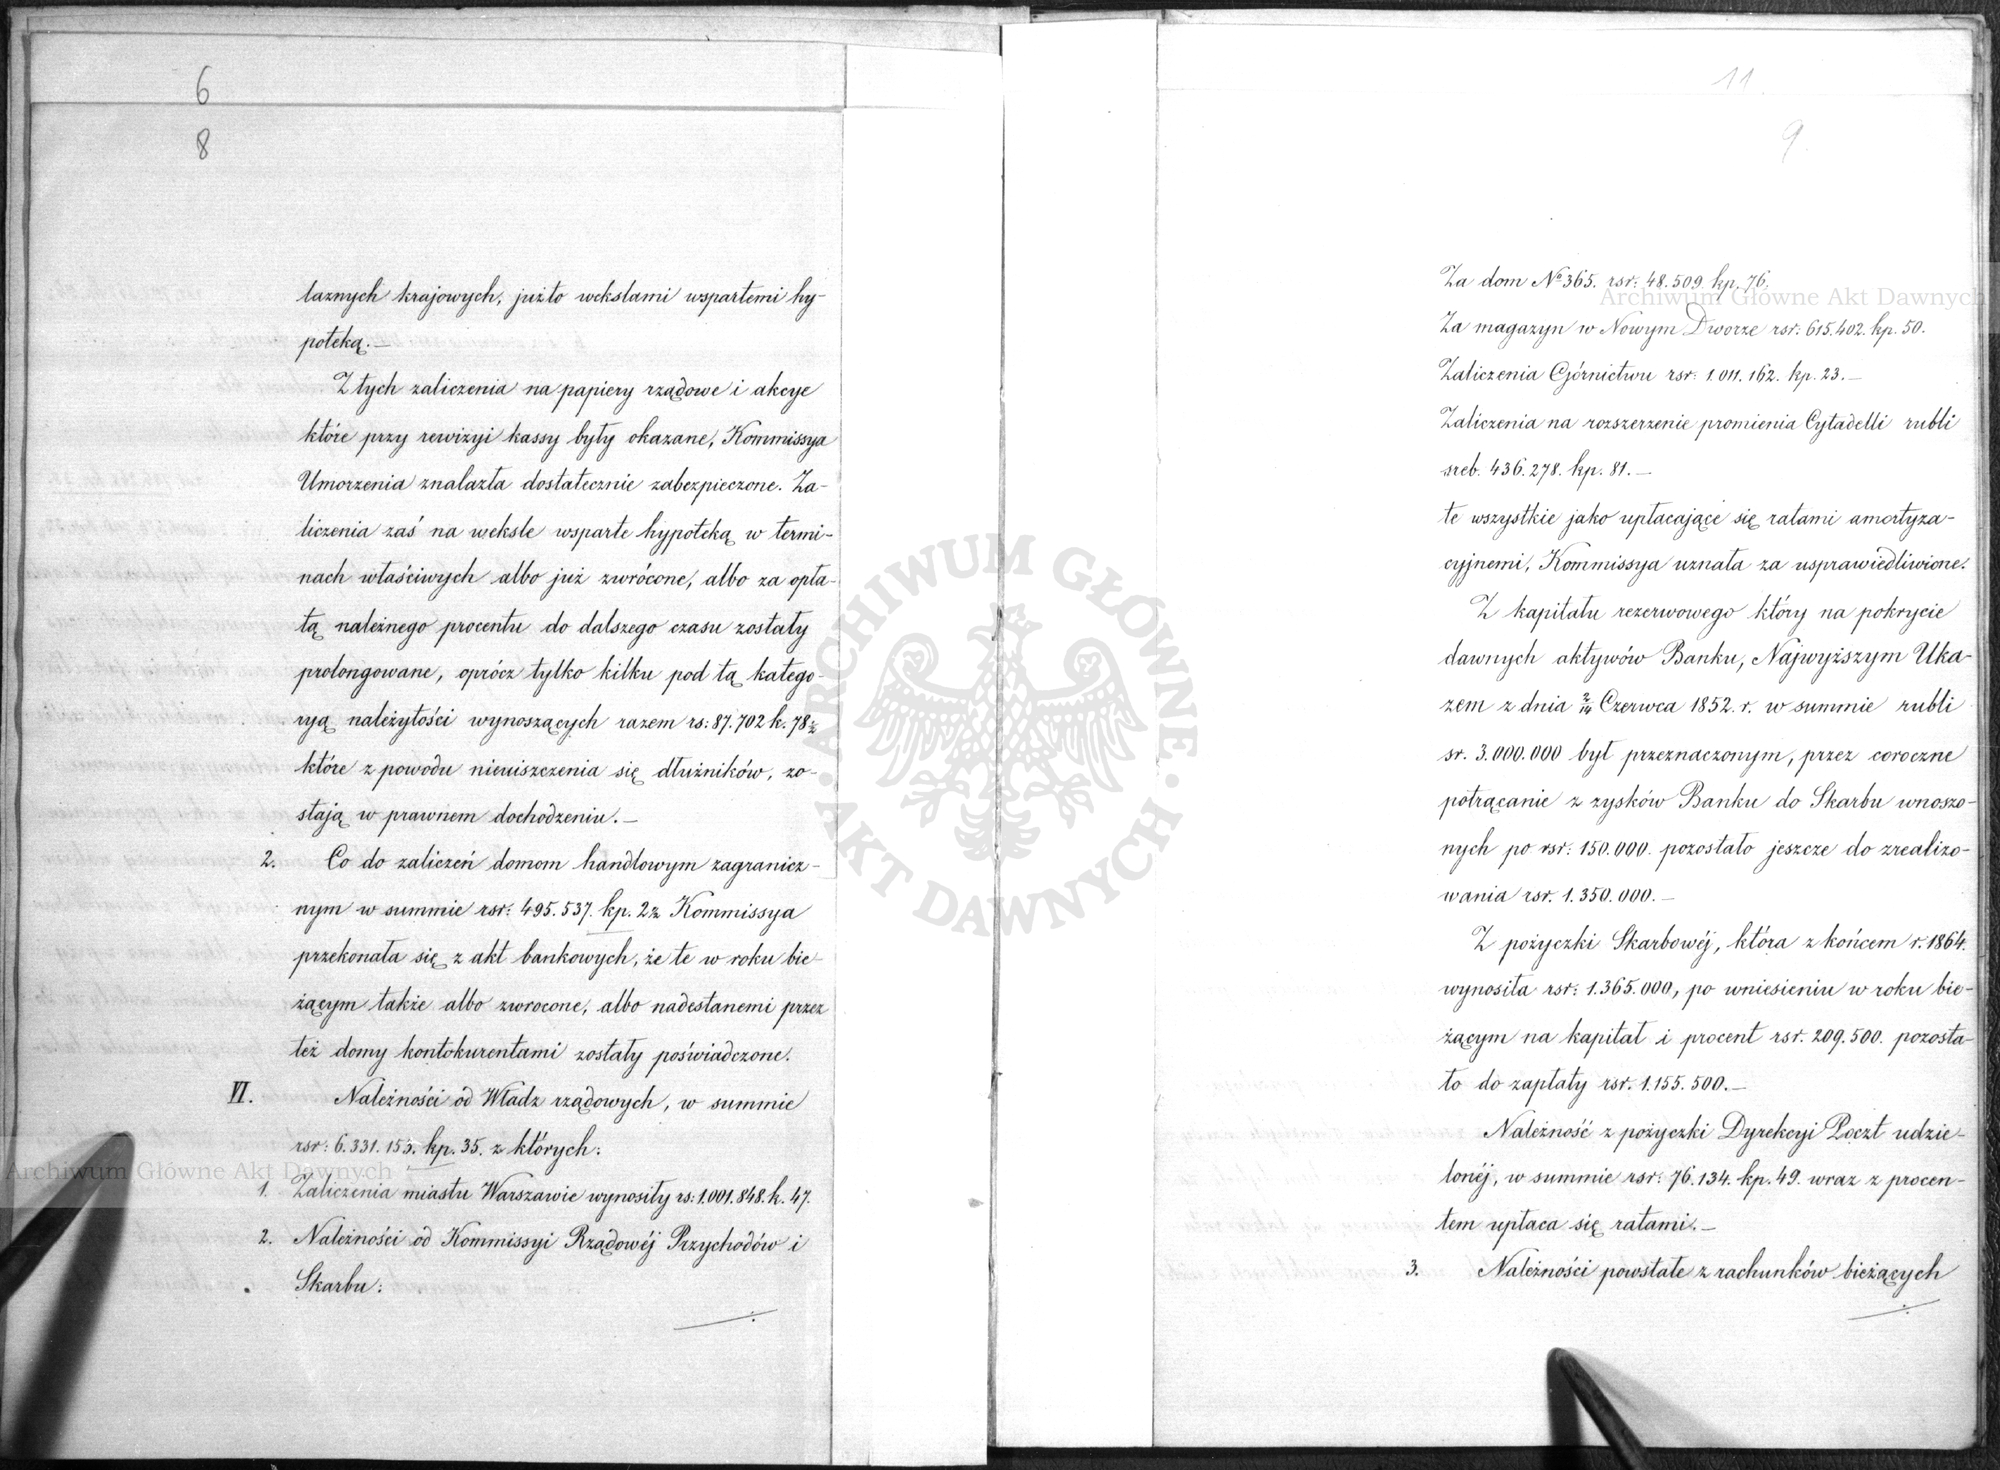 6
8
laznych krajowych, jużto wekslami wspartemi hy-
poteką.—
Z tych zaliczenia na papiery rządowe i akcye
które przy rewizyi kassy były okazane, Kommissya
Umorzenia znalazła dostatecznie zabezpieczone. Za-
liczenia zaś na weksle wsparte hypoteką w termi-
nach właściwych albo już zwrócone, albo za opła-
tą należnego procentu do dalszego czasu zostały
prolongowane, oprócz tylko kilku pod tą katego-
ryą należytości wynoszących razem rs: 87.702 k. 78½
które z powodu nieuiszczenia się dłużników, zo-
stają w prawnem dochodzeniu.—
2. Co do zaliczeń domom handlowym zagranicz-
nym w summie rsr: 495.537. kp. 2½ Kommissya
przekonała się z akt bankowych, że te w roku bie-
żącym także albo zwrocone, albo nadesłanemi przez
też domy kontokurentami zostały poświadczone.
VI. Należności od Władz rządowych, w summie
rsr: 6.331.153. kp. 35. z których:
1. Zaliczenia miastu Warszawie wynosiły rs: 1.001.848. k. 47.
2. Należności od Kommissyi Rządowéj Przychodów i
Skarbu:
11
9
Za dom № 365. rsr: 48.509. kp. 76.
Za magazyn w Nowym Dworze rsr: 615.402. kp. 50.
Zaliczenia Górnictwu rsr: 1.011.162. kp. 23.—
Zaliczenia na rozszerzenie promienia Cytadelli rubli
sreb. 436.278. kp. 81.—
te wszystkie jako upłacające się ratami amortyza-
cyjnemi, Kommissya uznała za usprawiedliwione.
Z kapitału rezerwowego który na pokrycie
dawnych aktywów Banku, Najwyższym Uka-
zem z dnia 2/14 Czerwca 1852. r. w summie rubli
sr. 3.000.000 był przeznaczonym, przez coroczne
potrącanie z zysków Banku do Skarbu wnoszo-
nych po rsr: 150.000. pozostało jeszcze do zrealizo-
wania rsr. 1.350.000.—
Z pożyczki Skarbowéj, która z końcem r. 1864.
wynosiła rsr: 1.365.000, po wniesieniu w roku bie-
żącym na kapitał i procent rsr. 209.500. pozosta-
ło do zapłaty rsr. 1.155.500.—
Należność z pożyczki Dyrekcyi Poczt udzie-
lonéj, w summie rsr: 76.134. kp. 49. wraz z procen-
tem upłaca się ratami.—
3. Należności powstałe z rachunków bieżących
Archiwum Główne Akt Dawnych
Archiwum Główne Akt Dawnych
ARCHIWUM GŁÓWNE · AKT DAWNYCH ·